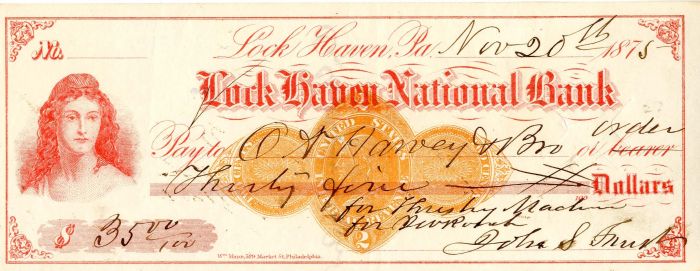 No. Lock Haven, Pa. Nov 20th 1875
Lock Haven National Bank
Pay to & Bro or bearer order
UNITED STATES
Thirty five Dollars
for Threshing Machine
for
$ 35 00/100 John S.
2
Wm Mann, 529 Market St. Philadelphia.